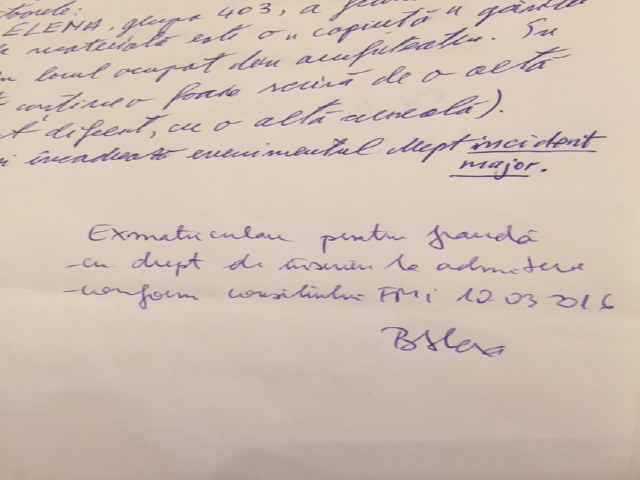 ELENA, grupa 403, a
materială este o copiuță găsită
locul ocupat din amfiteatru. În
conține o foaie scrisă de o altă
diferit, cu o altă cerneală).
încadrează evenimentul drept incident
major.
Exmatriculare pentru fraudă
- cu drept de înscriere la admitere
- conform consiliului FMI 12 03 2016